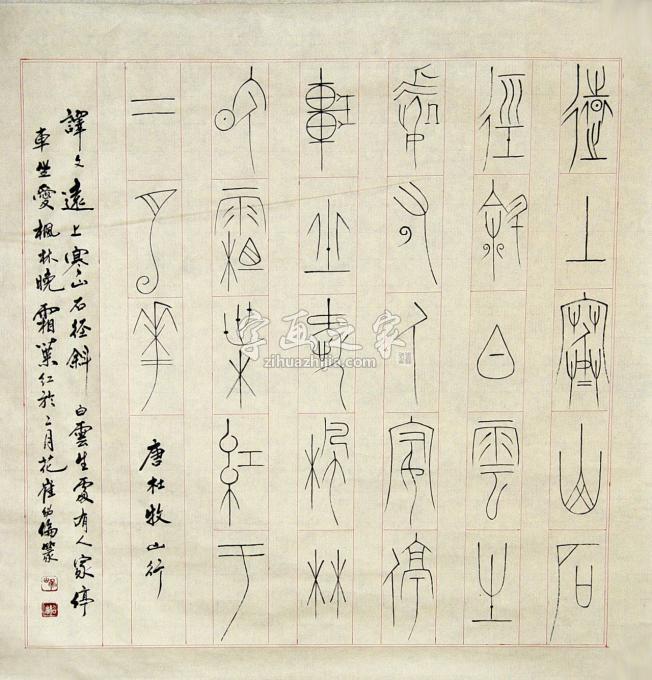 遠上寒山石
徑斜白雲生
處有人家停
車坐愛楓林
晚霜葉紅於
二月花
唐杜牧山行
譯文遠上寒山石径斜白雲生處有人家停
車坐愛楓林晚霜葉红於二月花崔倫篆
字画之家
zihuazhijia.com